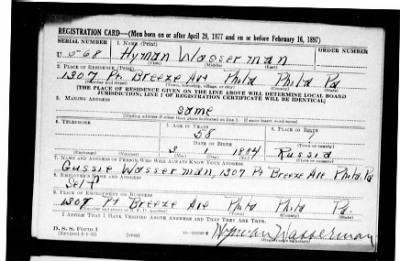 REGISTRATION CARD—(Men born on or after April 28, 1877 and on or before February 16, 1897)
SERIAL NUMBER 1. NAME (Print)
U Hyman Wasserman
(First) (Middle) (Last)
2. PLACE OF RESIDENCE (Print)
1307 Pt Breeze Ave Phila Phila Pa
[THE PLACE OF RESIDENCE GIVEN ON THE LINE ABOVE WILL DETERMINE LOCAL BOARD
JURISDICTION; LINE 2 OF REGISTRATION CERTIFICATE WILL BE IDENTICAL]
3. MAILING ADDRESS
same
4. TELEPHONE 5. AGE IN YEARS 6. PLACE OF BIRTH
58
DATE OF BIRTH
Russia
7. NAME AND ADDRESS OF PERSON WHO WILL ALWAYS KNOW YOUR ADDRESS
Gussie Wasserman, 1307 Pt Breeze Ave Phila Pa
8. EMPLOYER'S NAME AND ADDRESS
Self
9. PLACE OF EMPLOYMENT OR BUSINESS
1307 Pt Breeze Ave Phila Pa.
I AFFIRM THAT I HAVE VERIFIED ABOVE ANSWERS AND THAT THEY ARE TRUE.
D. S. S. Form 1
Hyman Wasserman
(Registrant's signature)